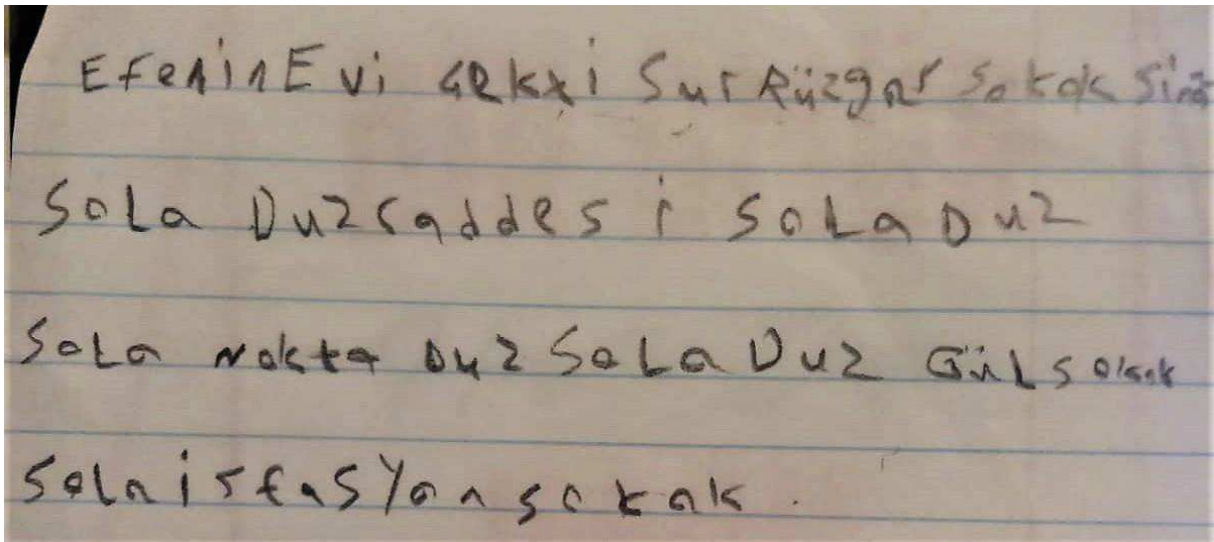 EfeninEvi Sur Rüzgar Sokak
SoLa Duz caddes i SoLa Duz
SoLa Nokta Duz SoLa Duz GüL sokak
Sola istasyon sokak.